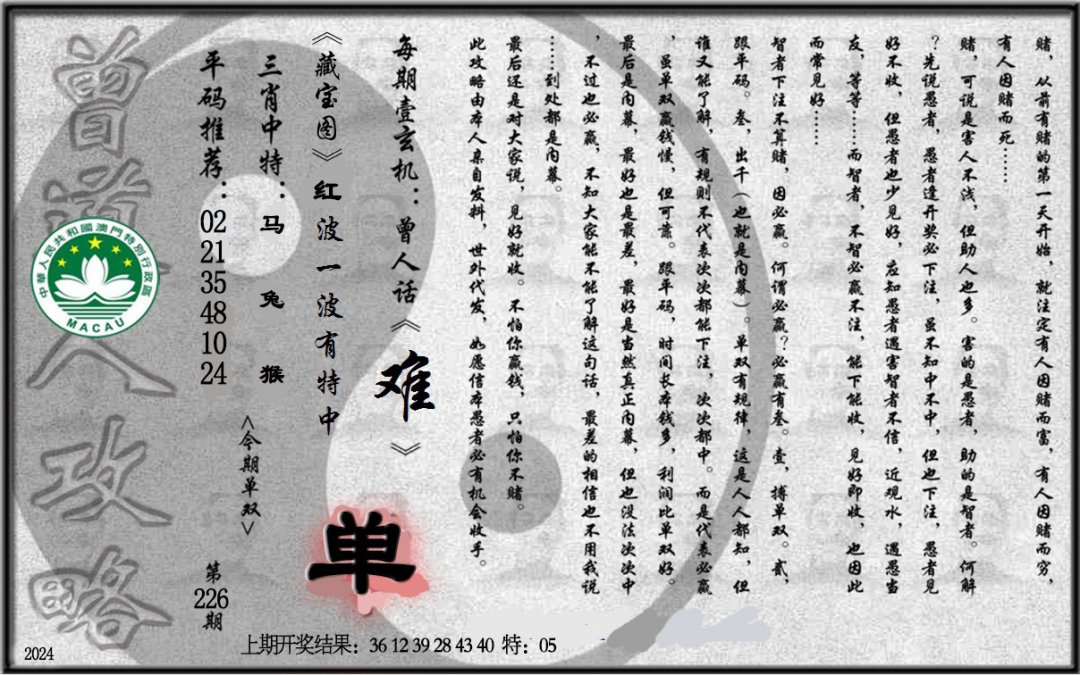 赌，从前有赌的第一天开始，就注定有人因赌而富，有人因赌而穷，
有人因赌而死……
赌，可说是害人不浅，但助人也多。害的是愚者，助的是智者。何解
？先说愚者，愚者逢开奖必下注，虽不知中不中，但也下注，愚者见
好不收，但愚者也少见好，应知愚者遇害智者不信，近观水，遇愚当
友，等等……而智者，不智必赢不注，能下能收，见好即收，也因此
而常见好……
智者下注不算赌，因必赢。何谓必赢？必赢有叁。壹，搏单双。贰，
跟平码。叁，出千（也就是内幕）。单双有规律，这是人人都知，但
谁又能了解，有规则不代表次次都能下注，次次都中。而是代表必赢
，虽单双赢钱慢，但可靠。跟平码，时间长本钱多，利润比单双好。
最后是内幕，最好也是最差，最好是当然真正内幕，但也没法次次中
，不过也必赢，不知大家能不能了解这句话，最差的相信也不用我说
……到处都是内幕。
最后还是对大家说，见好就收。不怕你赢钱，只怕你不赌。
此攻略由本人亲自发料，世外代发，如愿信本愚者必有机会收手。
每期壹玄机：曾人话《难》
《藏宝图》红波一波有特中
三肖中特：马 兔 猴
平码推荐：02 21 35 48 10 24
<今期单双>
单
第226期
曾道人攻略
中華人民共和國澳門特別行政區
MACAU
上期开奖结果：36 12 39 28 43 40 特：05
2024